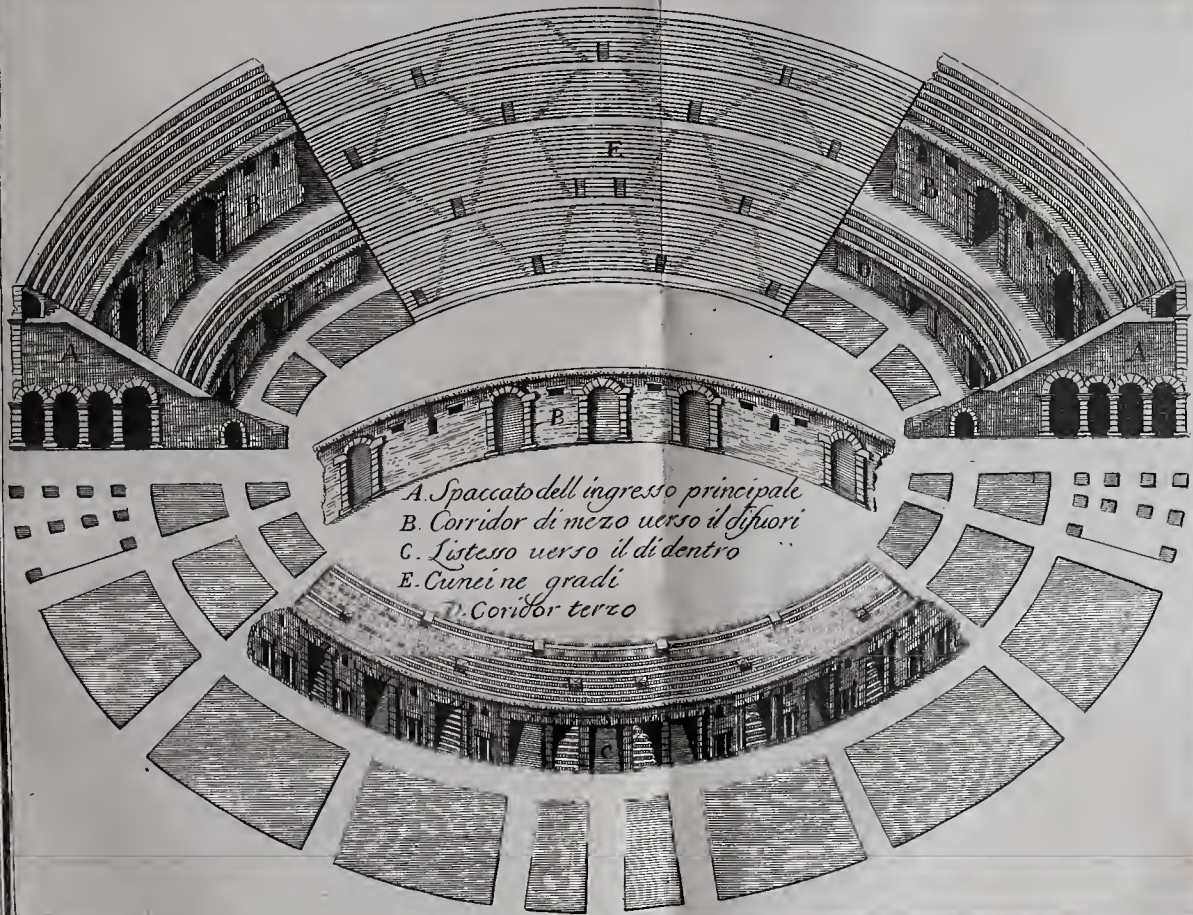 E
B
B
D
D
A
A
B
A. Spaccato dell ingresso principale
B. Corridor di mezo uerso il difuori
C. Listesso uerso il di dentro
E. Cunei ne gradi
D. Coridor terzo
C